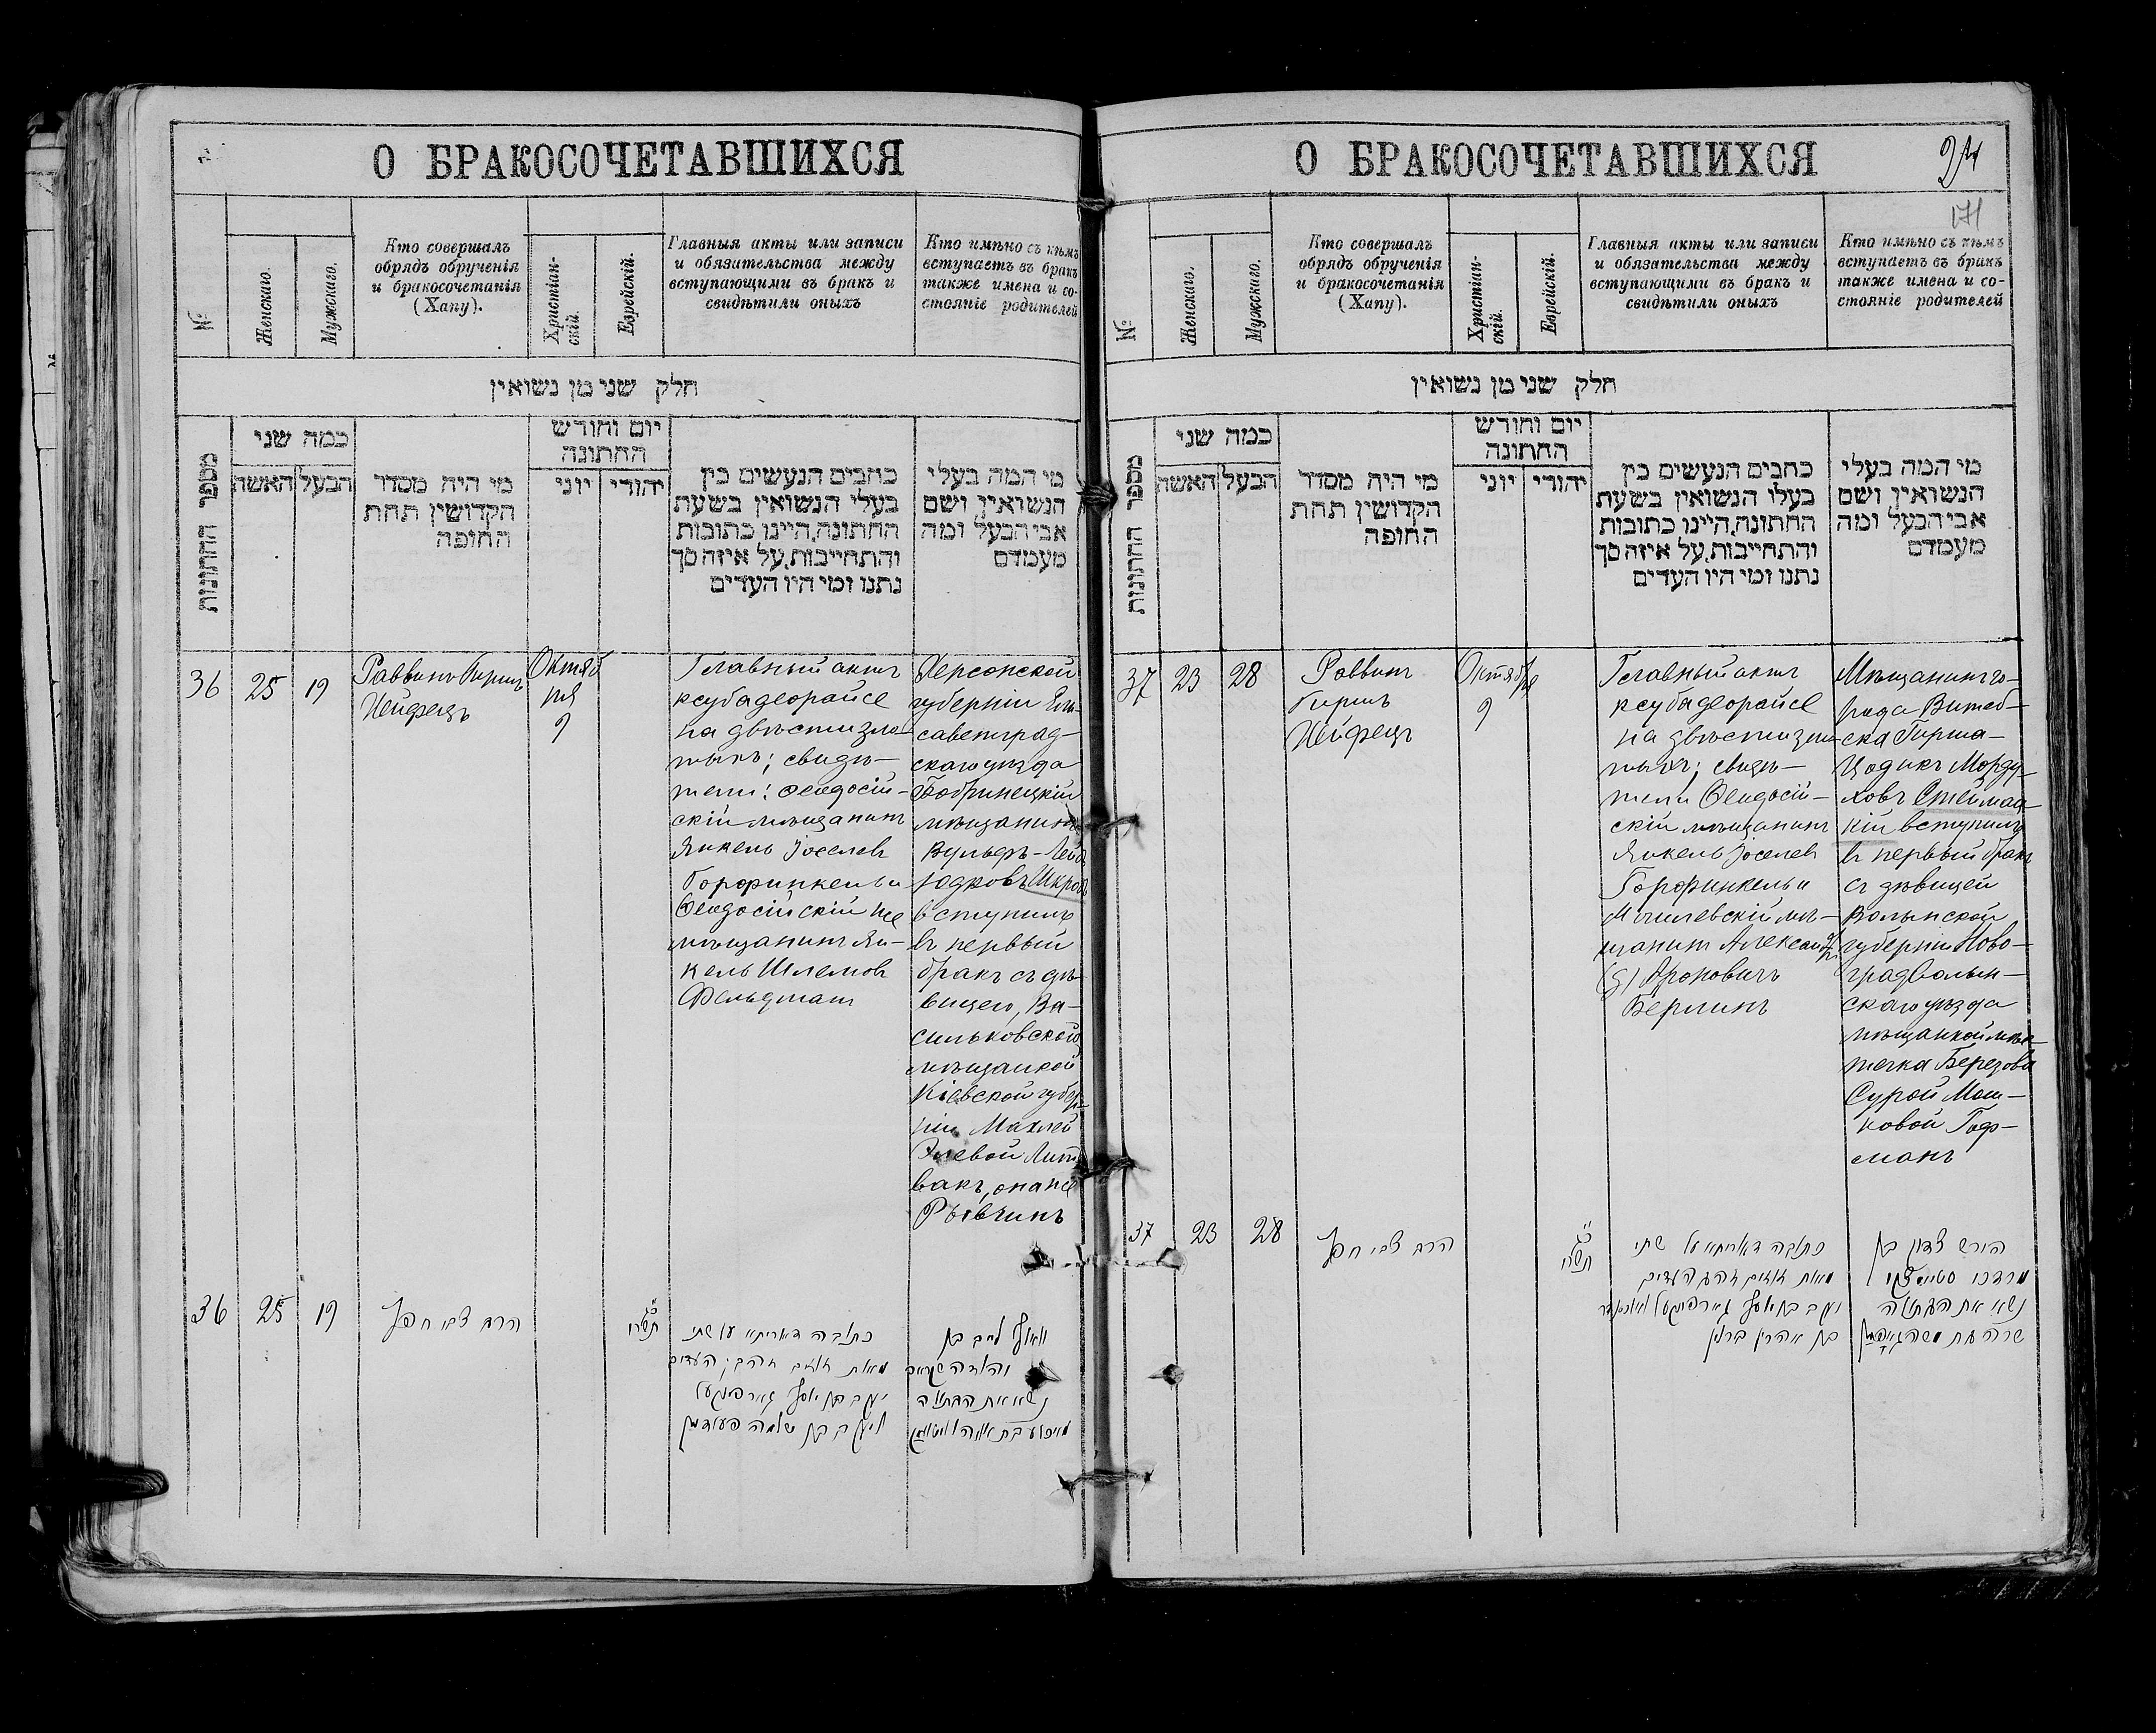 О БРАКОСОЧЕТАВШИХСЯ
№
Женскаго.
Мужскаго.
Кто совершалъ
обрядъ обрученія
и бракосочетанія
(Хапу).
Христіан-
скій.
Еврейскій.
Главныя акты или записи
и обязательства между
вступающими въ бракъ и
свидѣтили оныхъ
Кто имѣно съ кѣмъ
вступаетъ въ бракъ
также имена и со-
стояніе родителей
חלק שני מן נשואין
מספר החתונות
כמה שני
האשה
הבעל
מי היה מסדר
הקדושין תחת
החופה
יום וחודש
החתונה
יוני
יהודי
כתבים הנעשים בין
בעלי הנשואין בשעת
החתונה, היינו כתובות
והתחייבות, על איזה סך
נתנו ומי היו העדים
מי המה בעלי
הנשואין ושם
אבי הבעל ומה
מעמדם
36
25
19
Раввинъ Гиршъ
Хейфецъ
Октяб
ря
9
Главный актъ
ксуба деорайсе
на двѣсти зло-
тыхъ; свидѣ-
тели: Ѳеодосій-
скій мѣщанинъ
Янкель Іоселев
Горфинкель и
Ѳеодосійскій же
мѣщанинъ Ян-
кель Шлемов
Фельдман
Херсонской
губерніи Ели-
саветград-
скаго уѣзда
Бобринецкій
мѣщанинъ
Вульфъ-Лейб
Юдковъ Шкроб
вступилъ
въ первый
бракъ съ дѣ-
вицею, Ва-
сильковской
мѣщанкой
Кіевской губер-
ніи Махлей
Элевой Лит
вакъ, она же
Рывчинъ
36
25
19
הרב צבי חפץ
כג
תשרי
כתובה דאריתא על שתי
מאות זוזים זהב; העדים
יעקב בן יוסף גארפינקעל
ויעקב בן שלמה פעלדמן
וואלף לייב בן
נשא את הבתולה
О БРАКОСОЧЕТАВШИХСЯ
24
171
№
Женскаго.
Мужскаго.
Кто совершалъ
обрядъ обрученія
и бракосочетанія
(Хапу).
Христіан-
скій.
Еврейскій.
Главныя акты или записи
и обязательства между
вступающими въ бракъ и
свидѣтили оныхъ
Кто имѣно съ кѣмъ
вступаетъ въ бракъ
также имена и со-
стояніе родителей
חלק שני מן נשואין
מספר החתונות
כמה שני
האשה
הבעל
מי היה מסדר
הקדושין תחת
החופה
יום וחודש
החתונה
יוני
יהודי
כתבים הנעשים בין
בעלי הנשואין בשעת
החתונה, היינו כתובות
והתחייבות, על איזה סך
נתנו ומי היו העדים
מי המה בעלי
הנשואין ושם
אבי הבעל ומה
מעמדם
37
23
28
Раввинъ
Гиршъ
Хейфецъ
Октября
9
Главный актъ
ксуба деорайсе
на двѣсти зло-
тыхъ; свидѣ-
тели Ѳеодосій-
скій мѣщанинъ
Янкель Іоселев
Горфинкель и
Могилевскій мѣ-
щанинъ Александръ
Ароновичъ
Берлинъ
Мѣщанинъ го-
рода Витеб-
ска Гирша-
Цодикъ Морду-
ховъ Стеймац-
кій вступилъ
въ первый бракъ
съ дѣвицей
Волынской
губерніи Ново-
градволын-
скаго уѣзда
мѣщанкой мѣс-
течка Березова
Сурой Мош-
ковой Гоф-
манъ
37
23
28
הרב צבי חפץ
כג
תשרי
כתובה דאריתא על שתי
מאות זוזים זהב העדים
יעקב בן יוסף גארפינקעל ואלכסנדר
בן אהרן ברלין
הירש צדוק בן
מרדכי סטיימצקי
נשא את הבתולה
שרה בת משה גאפמן